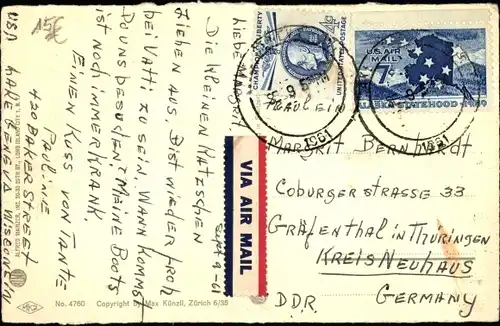 15€
Sept 9 - 61
Liebe Margrit
Die kleinen Kätzchen
ziehen aus. Bist wieder froh
bei Vatti zu sein. Wann kommst
Du uns besuchen? Meine Boots
ist noch immer krank.
Einen Kuss von Tante
Pauline
420 Baker Street
Lake Geneva Wisconsin
USA
CHAMPION OF LIBERTY
4¢
UNITED STATES POSTAGE
U.S. AIR MAIL
7¢
ALASKA STATEHOOD 1959
9
1961
1961
VIA AIR MAIL
Fräulein
Margrit Bernhardt
Coburgerstrasse 33
Gräfenthal in Thüringen
Kreis Neuhaus
DDR. Germany
No. 4760 Copyright by Max Künzli, Zürich 6/35
MKZ